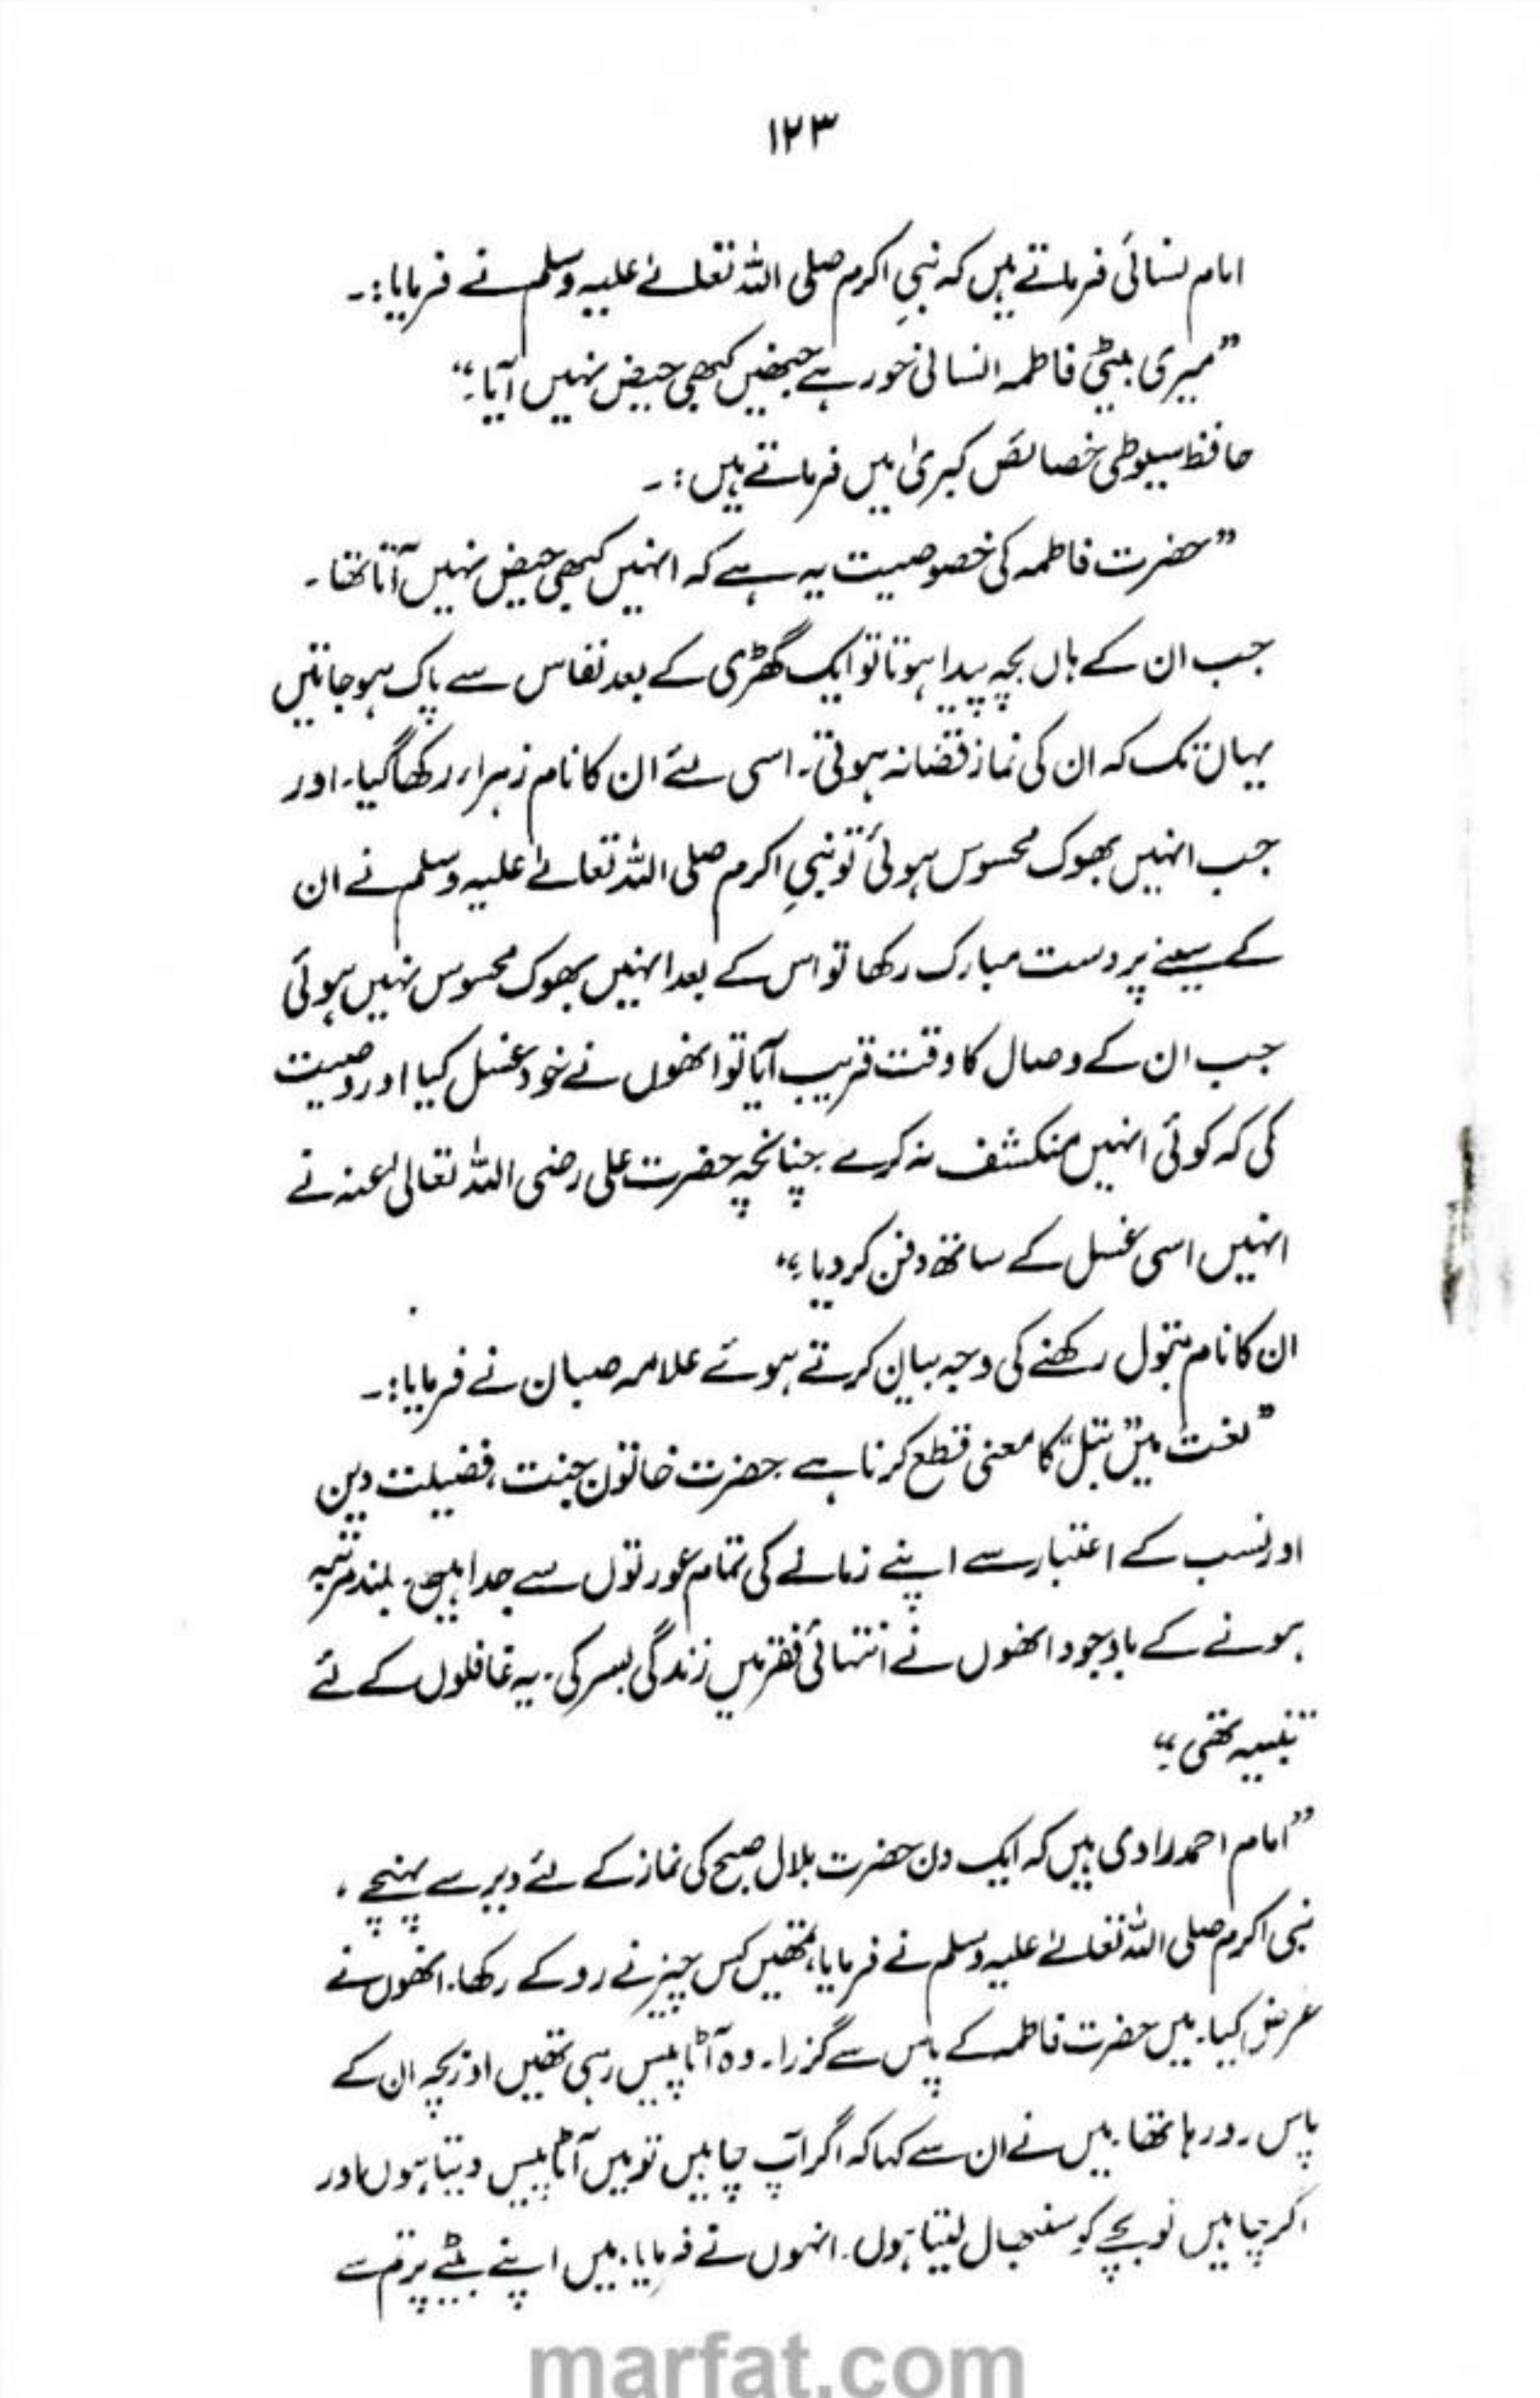 ۱۲۳
امام نسائی فرماتے ہیں کہ نبیِ اکرم صلی اللہ تعالےٰ علیہ وسلم نے فرمایا :۔
”میری بیٹی فاطمہ انسانی حور ہے جنھیں کبھی حیض نہیں آیا۔“
حافظ سیوطی خصائص کبریٰ میں فرماتے ہیں :۔
”حضرت فاطمہ کی خصوصیت یہ ہے کہ انہیں کبھی حیض نہیں آتا تھا۔
جب ان کے ہاں بچہ پیدا ہوتا تو ایک گھڑی کے بعد نفاس سے پاک ہو جاتیں
یہاں تک کہ ان کی نماز قضا نہ ہوتی۔ اسی لئے ان کا نام زہراء رکھا گیا۔ اور
جب انہیں بھوک محسوس ہوئی تو نبیِ اکرم صلی اللہ تعالےٰ علیہ وسلم نے ان
کے سینے پر دست مبارک رکھا تو اس کے بعد انہیں بھوک محسوس نہیں ہوئی
جب ان کے وصال کا وقت قریب آیا تو انھوں نے خود غسل کیا اور وصیت
کی کہ کوئی انہیں منکشف نہ کرے۔ چنانچہ حضرت علی رضی اللہ تعالیٰ عنہ نے
انہیں اسی غسل کے ساتھ دفن کر دیا۔“
ان کا نام بتول رکھنے کی وجہ بیان کرتے ہوئے علامہ صبان نے فرمایا :۔
”لغت میں ”بتل“ کا معنی قطع کرنا ہے۔ حضرت خاتون جنت، فضیلت دین
اور نسب کے اعتبار سے اپنے زمانے کی تمام عورتوں سے جدا ہیں۔ بلند مرتبہ
ہونے کے باوجود انھوں نے انتہائی فقر میں زندگی بسر کی۔ یہ غافلوں کے لئے
تنبیہ تھی۔“
”امام احمد راوی ہیں کہ ایک دن حضرت بلال صبح کی نماز کے لئے دیر سے پہنچے،
نبی اکرم صلی اللہ تعالےٰ علیہ وسلم نے فرمایا، تمھیں کس چیز نے روکے رکھا۔ انھوں نے
عرض کیا۔ میں حضرت فاطمہ کے پاس سے گزرا۔ وہ آٹا پیس رہی تھیں اور بچہ ان کے
پاس رو رہا تھا۔ میں نے ان سے کہا کہ اگر آپ چاہیں تو میں آٹا پیس دیتا ہوں اور
اگر چاہیں تو بچے کو سنبھال لیتا ہوں۔ انہوں نے فرمایا۔ میں اپنے بیٹے پر تم سے
marfat.com